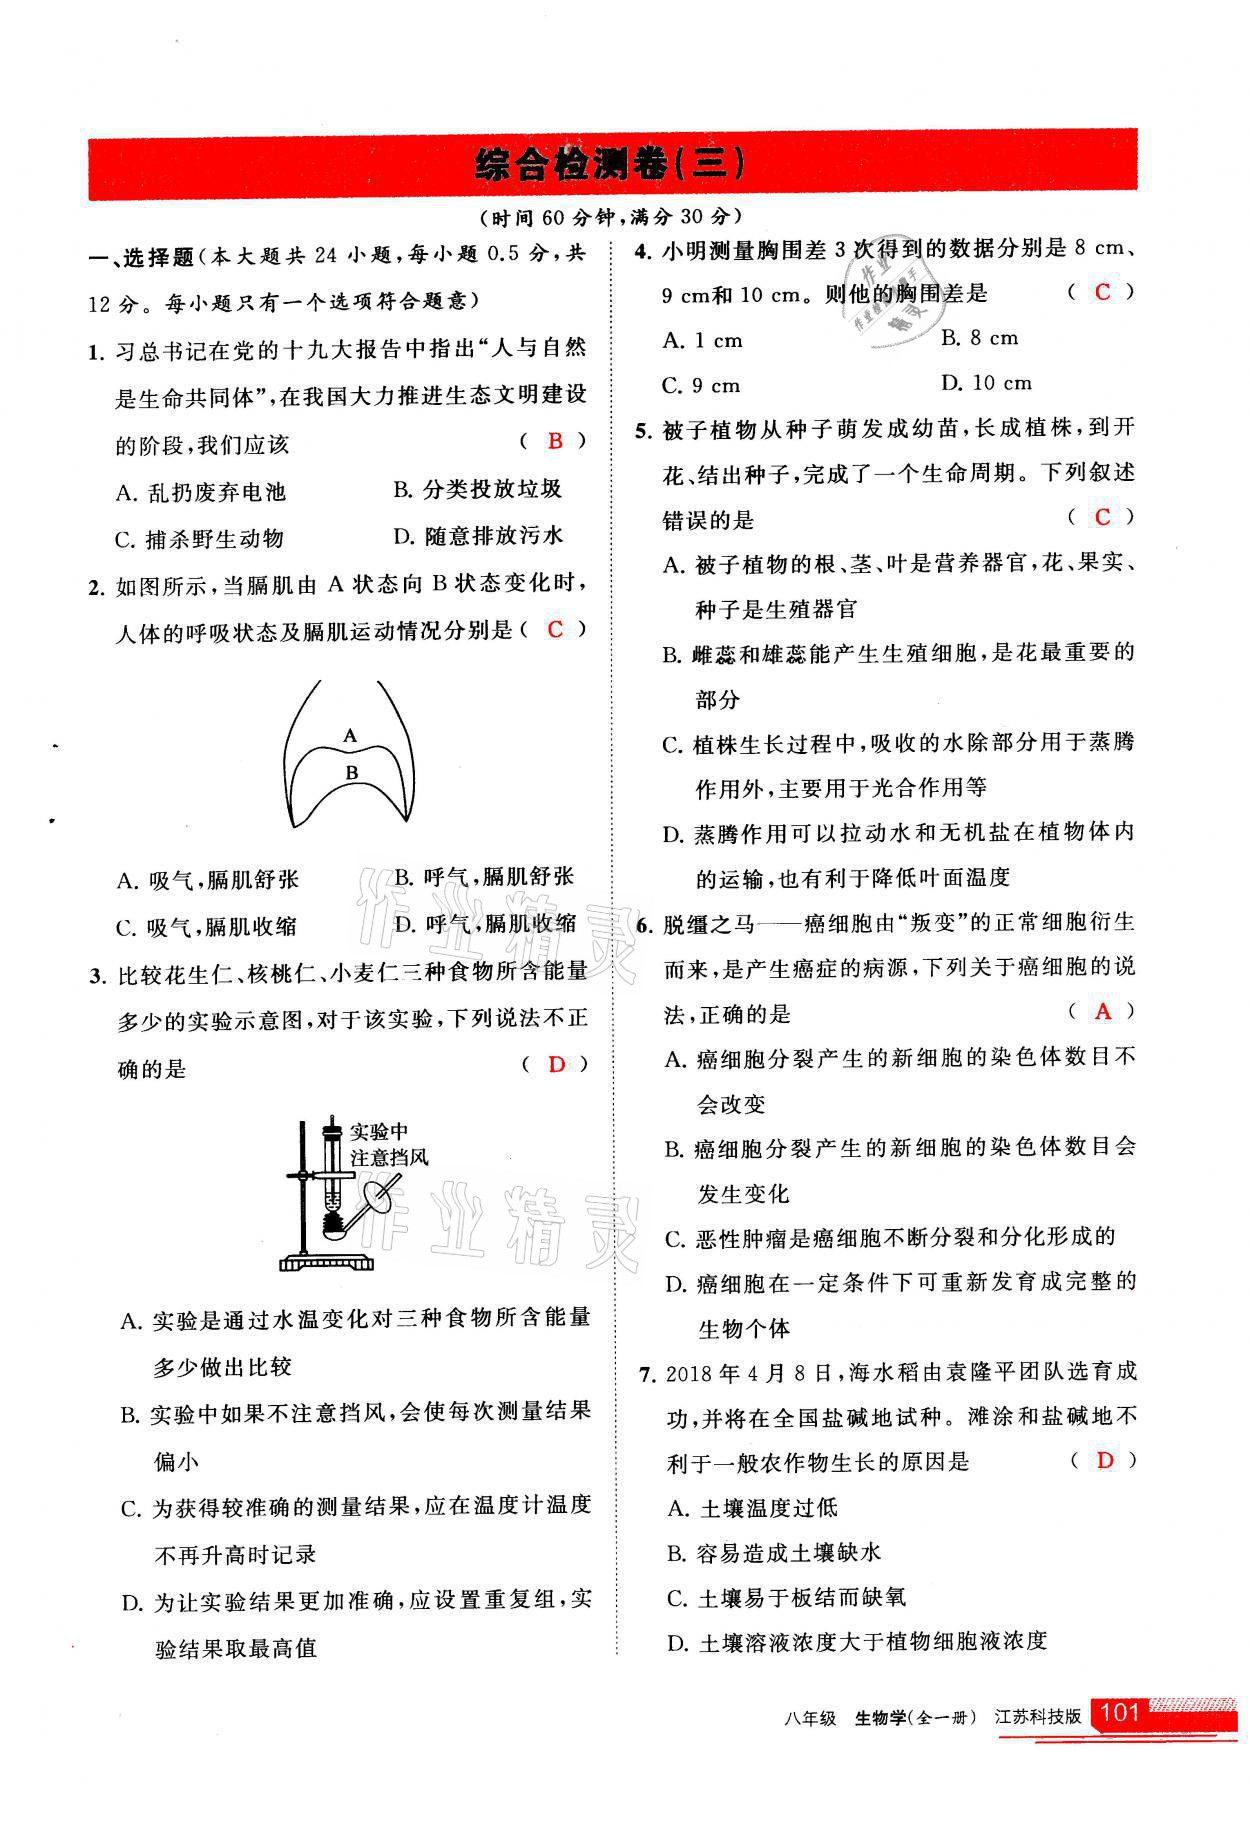 综合检测卷(三)
(时间60分钟,满分30分)
一、选择题(本大题共24小题,每小题0.5分,共
12分。每小题只有一个选项符合题意)
1. 习总书记在党的十九大报告中指出“人与自然
是生命共同体”,在我国大力推进生态文明建设
的阶段,我们应该 ( B )
A. 乱扔废弃电池 B. 分类投放垃圾
C. 捕杀野生动物 D. 随意排放污水
2. 如图所示,当膈肌由 A 状态向 B 状态变化时,
人体的呼吸状态及膈肌运动情况分别是( C )
A
B
A. 吸气,膈肌舒张 B. 呼气,膈肌舒张
C. 吸气,膈肌收缩 D. 呼气,膈肌收缩
3. 比较花生仁、核桃仁、小麦仁三种食物所含能量
多少的实验示意图,对于该实验,下列说法不正
确的是 ( D )
实验中
注意挡风
A. 实验是通过水温变化对三种食物所含能量
多少做出比较
B. 实验中如果不注意挡风,会使每次测量结果
偏小
C. 为获得较准确的测量结果,应在温度计温度
不再升高时记录
D. 为让实验结果更加准确,应设置重复组,实
验结果取最高值
4. 小明测量胸围差3次得到的数据分别是 8 cm、
9 cm和 10 cm。则他的胸围差是 ( C )
A. 1 cm B. 8 cm
C. 9 cm D. 10 cm
5. 被子植物从种子萌发成幼苗,长成植株,到开
花、结出种子,完成了一个生命周期。下列叙述
错误的是 ( C )
A. 被子植物的根、茎、叶是营养器官,花、果实、
种子是生殖器官
B. 雌蕊和雄蕊能产生生殖细胞,是花最重要的
部分
C. 植株生长过程中,吸收的水除部分用于蒸腾
作用外,主要用于光合作用等
D. 蒸腾作用可以拉动水和无机盐在植物体内
的运输,也有利于降低叶面温度
6. 脱缰之马——癌细胞由“叛变”的正常细胞衍生
而来,是产生癌症的病源,下列关于癌细胞的说
法,正确的是 ( A )
A. 癌细胞分裂产生的新细胞的染色体数目不
会改变
B. 癌细胞分裂产生的新细胞的染色体数目会
发生变化
C. 恶性肿瘤是癌细胞不断分裂和分化形成的
D. 癌细胞在一定条件下可重新发育成完整的
生物个体
7. 2018年4月8日,海水稻由袁隆平团队选育成
功,并将在全国盐碱地试种。滩涂和盐碱地不
利于一般农作物生长的原因是 ( D )
A. 土壤温度过低
B. 容易造成土壤缺水
C. 土壤易于板结而缺氧
D. 土壤溶液浓度大于植物细胞液浓度
作业精灵
作业精灵
八年级 生物学(全一册) 江苏科技版 101